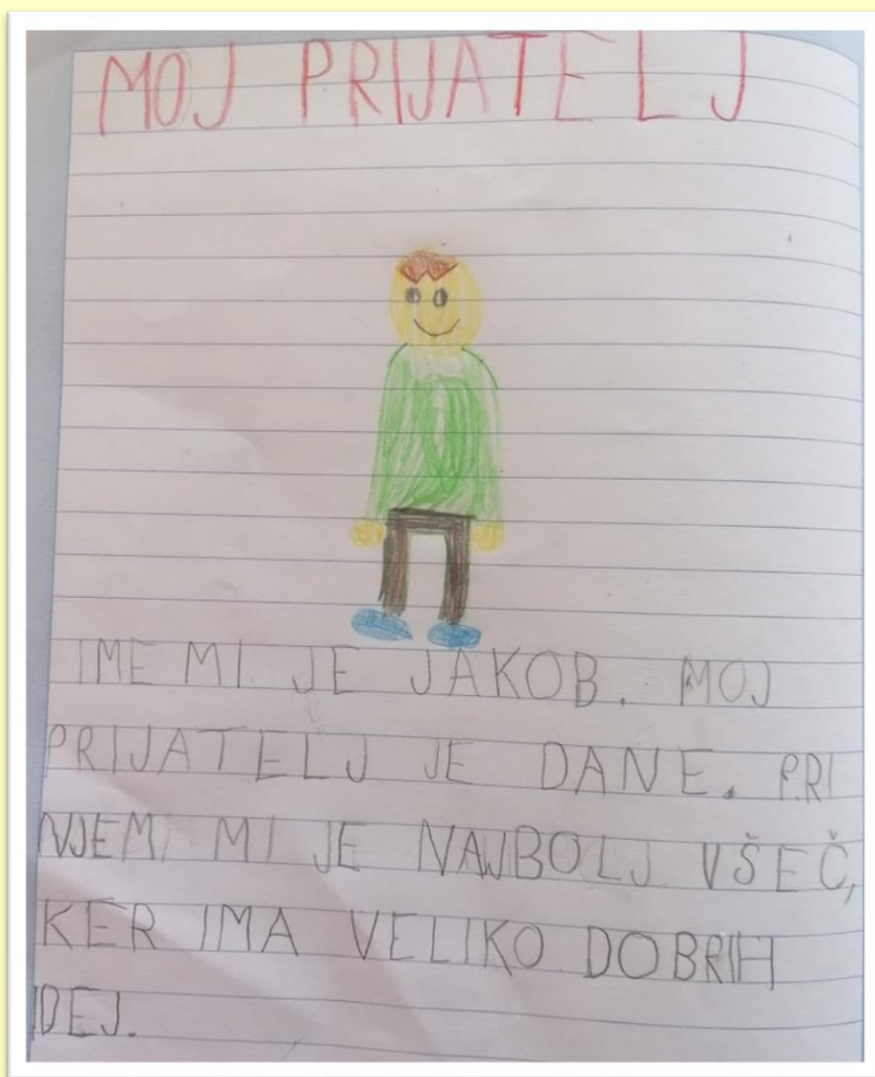 MOJ PRIJATELJ
IME MI JE JAKOB. MOJ
PRIJATELJ JE DANE. PRI
NJEM MI JE NAJBOLJ VŠEČ,
KER IMA VELIKO DOBRIH
IDEJ.